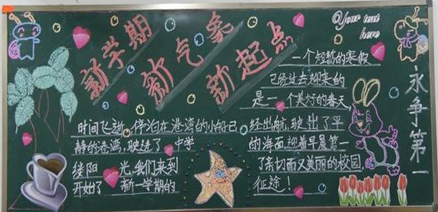 新学期
新气象
新起点
Your text
here
一个短暂的寒假
已经过去迎来的
是一个美好的春天
时间飞逝,停泊在港湾的小船已经出航,驶出了平
静的港湾,驶进了
的海面迎着早晨第一
缕阳光,我们来到了亲切而又美丽的校园
开始了新一学期的征途!
永争第一